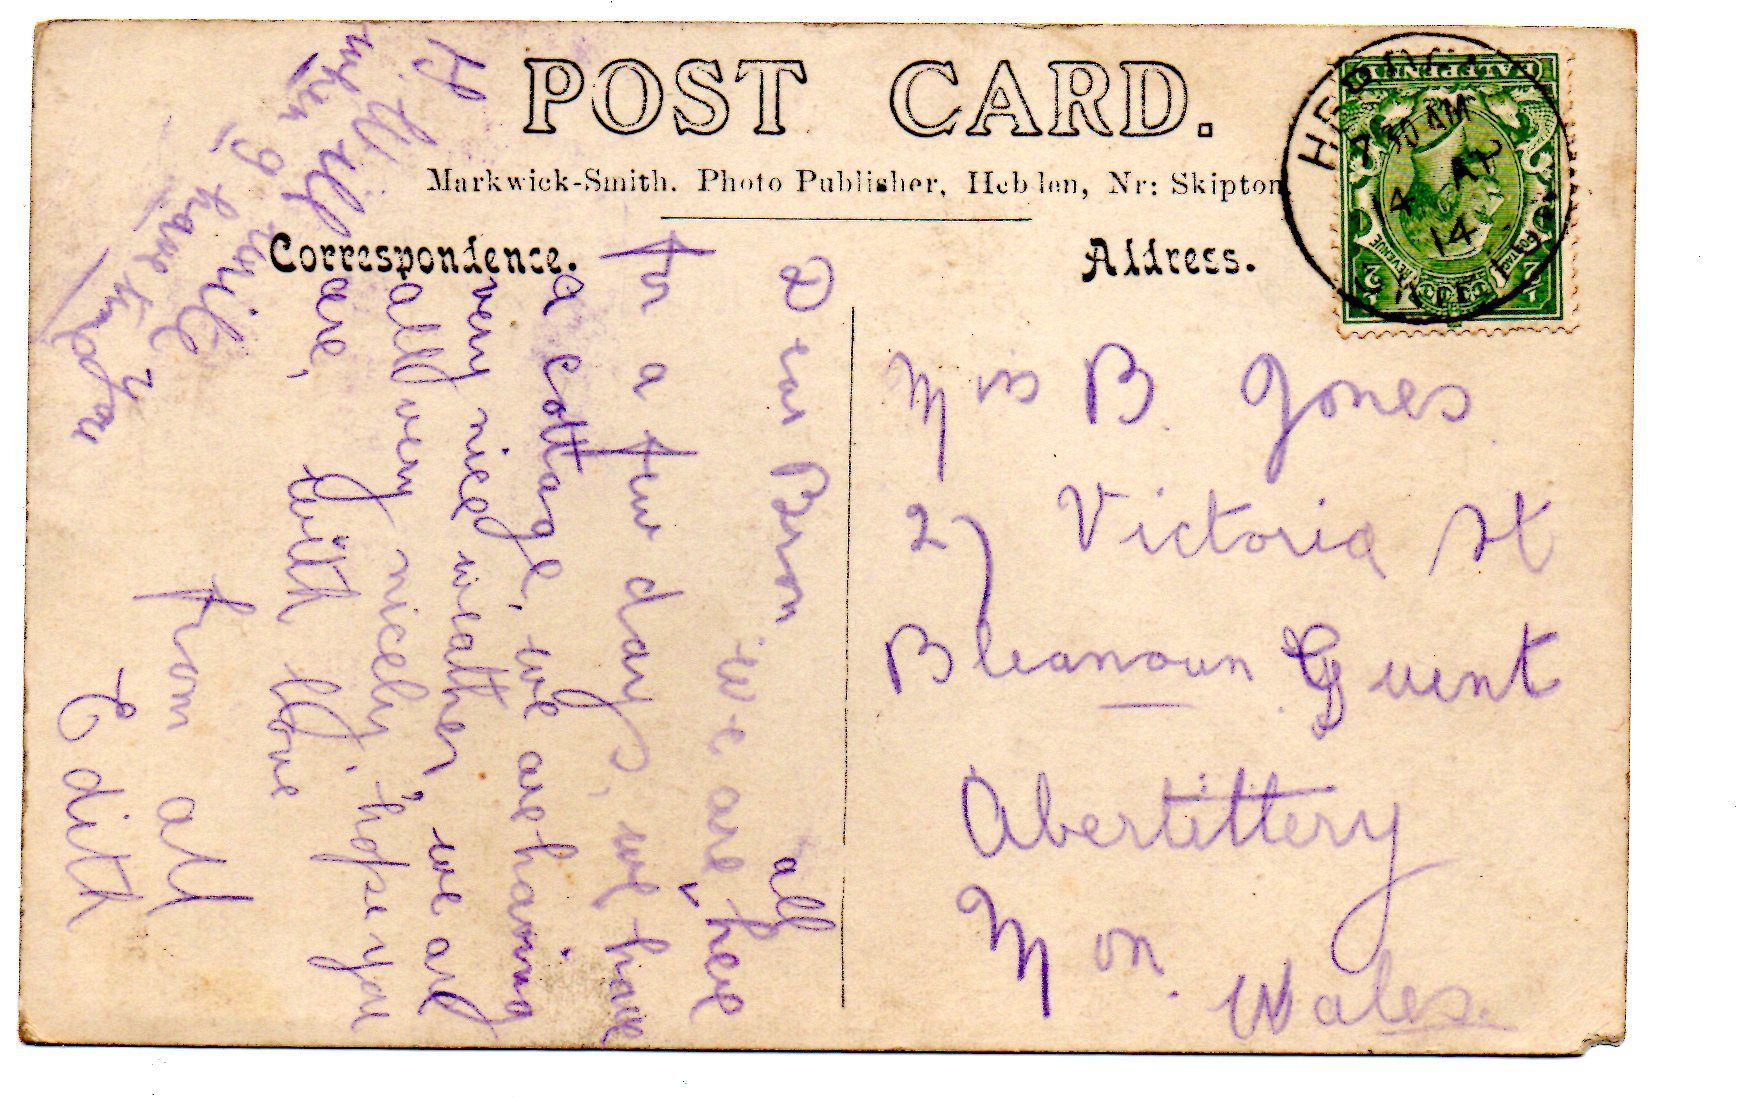 POST CARD.
Markwick-Smith. Photo Publisher, Hebden, Nr: Skipton
Correspondence.
Address.
HALFPENNY
POSTAGE
REVENUE
HEBDEN
7 30 AM
4 AP
14
Miss B. Jones.
27 Victoria St
Bleanoun Guent
Abertittery
Mon.
Wales.
Dear Bron
all
we are ^ here
for a few days, we have
a cottage, we are having
very nice weather, we are
all very nicely, hope you
are,
with love
from all
Edith
H. will
when
I
have time